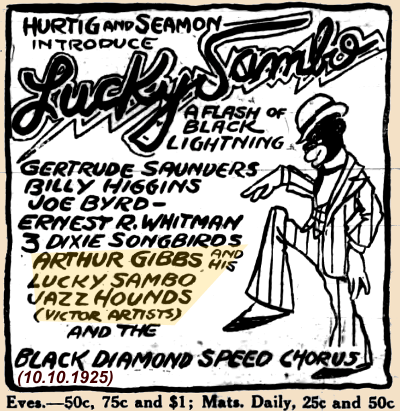 HURTIG AND SEAMON
INTRODUCE
Lucky Sambo
A FLASH OF
BLACK
LIGHTNING
GERTRUDE SAUNDERS
BILLY HIGGINS
JOE BYRD-
ERNEST R. WHITMAN
3 DIXIE SONGBIRDS
ARTHUR GIBBS AND HIS
LUCKY SAMBO
JAZZ HOUNDS
(VICTOR ARTISTS)
AND THE
BLACK DIAMOND SPEED CHORUS
(10.10.1925)
Eves.—50c, 75c and $1; Mats. Daily, 25c and 50c